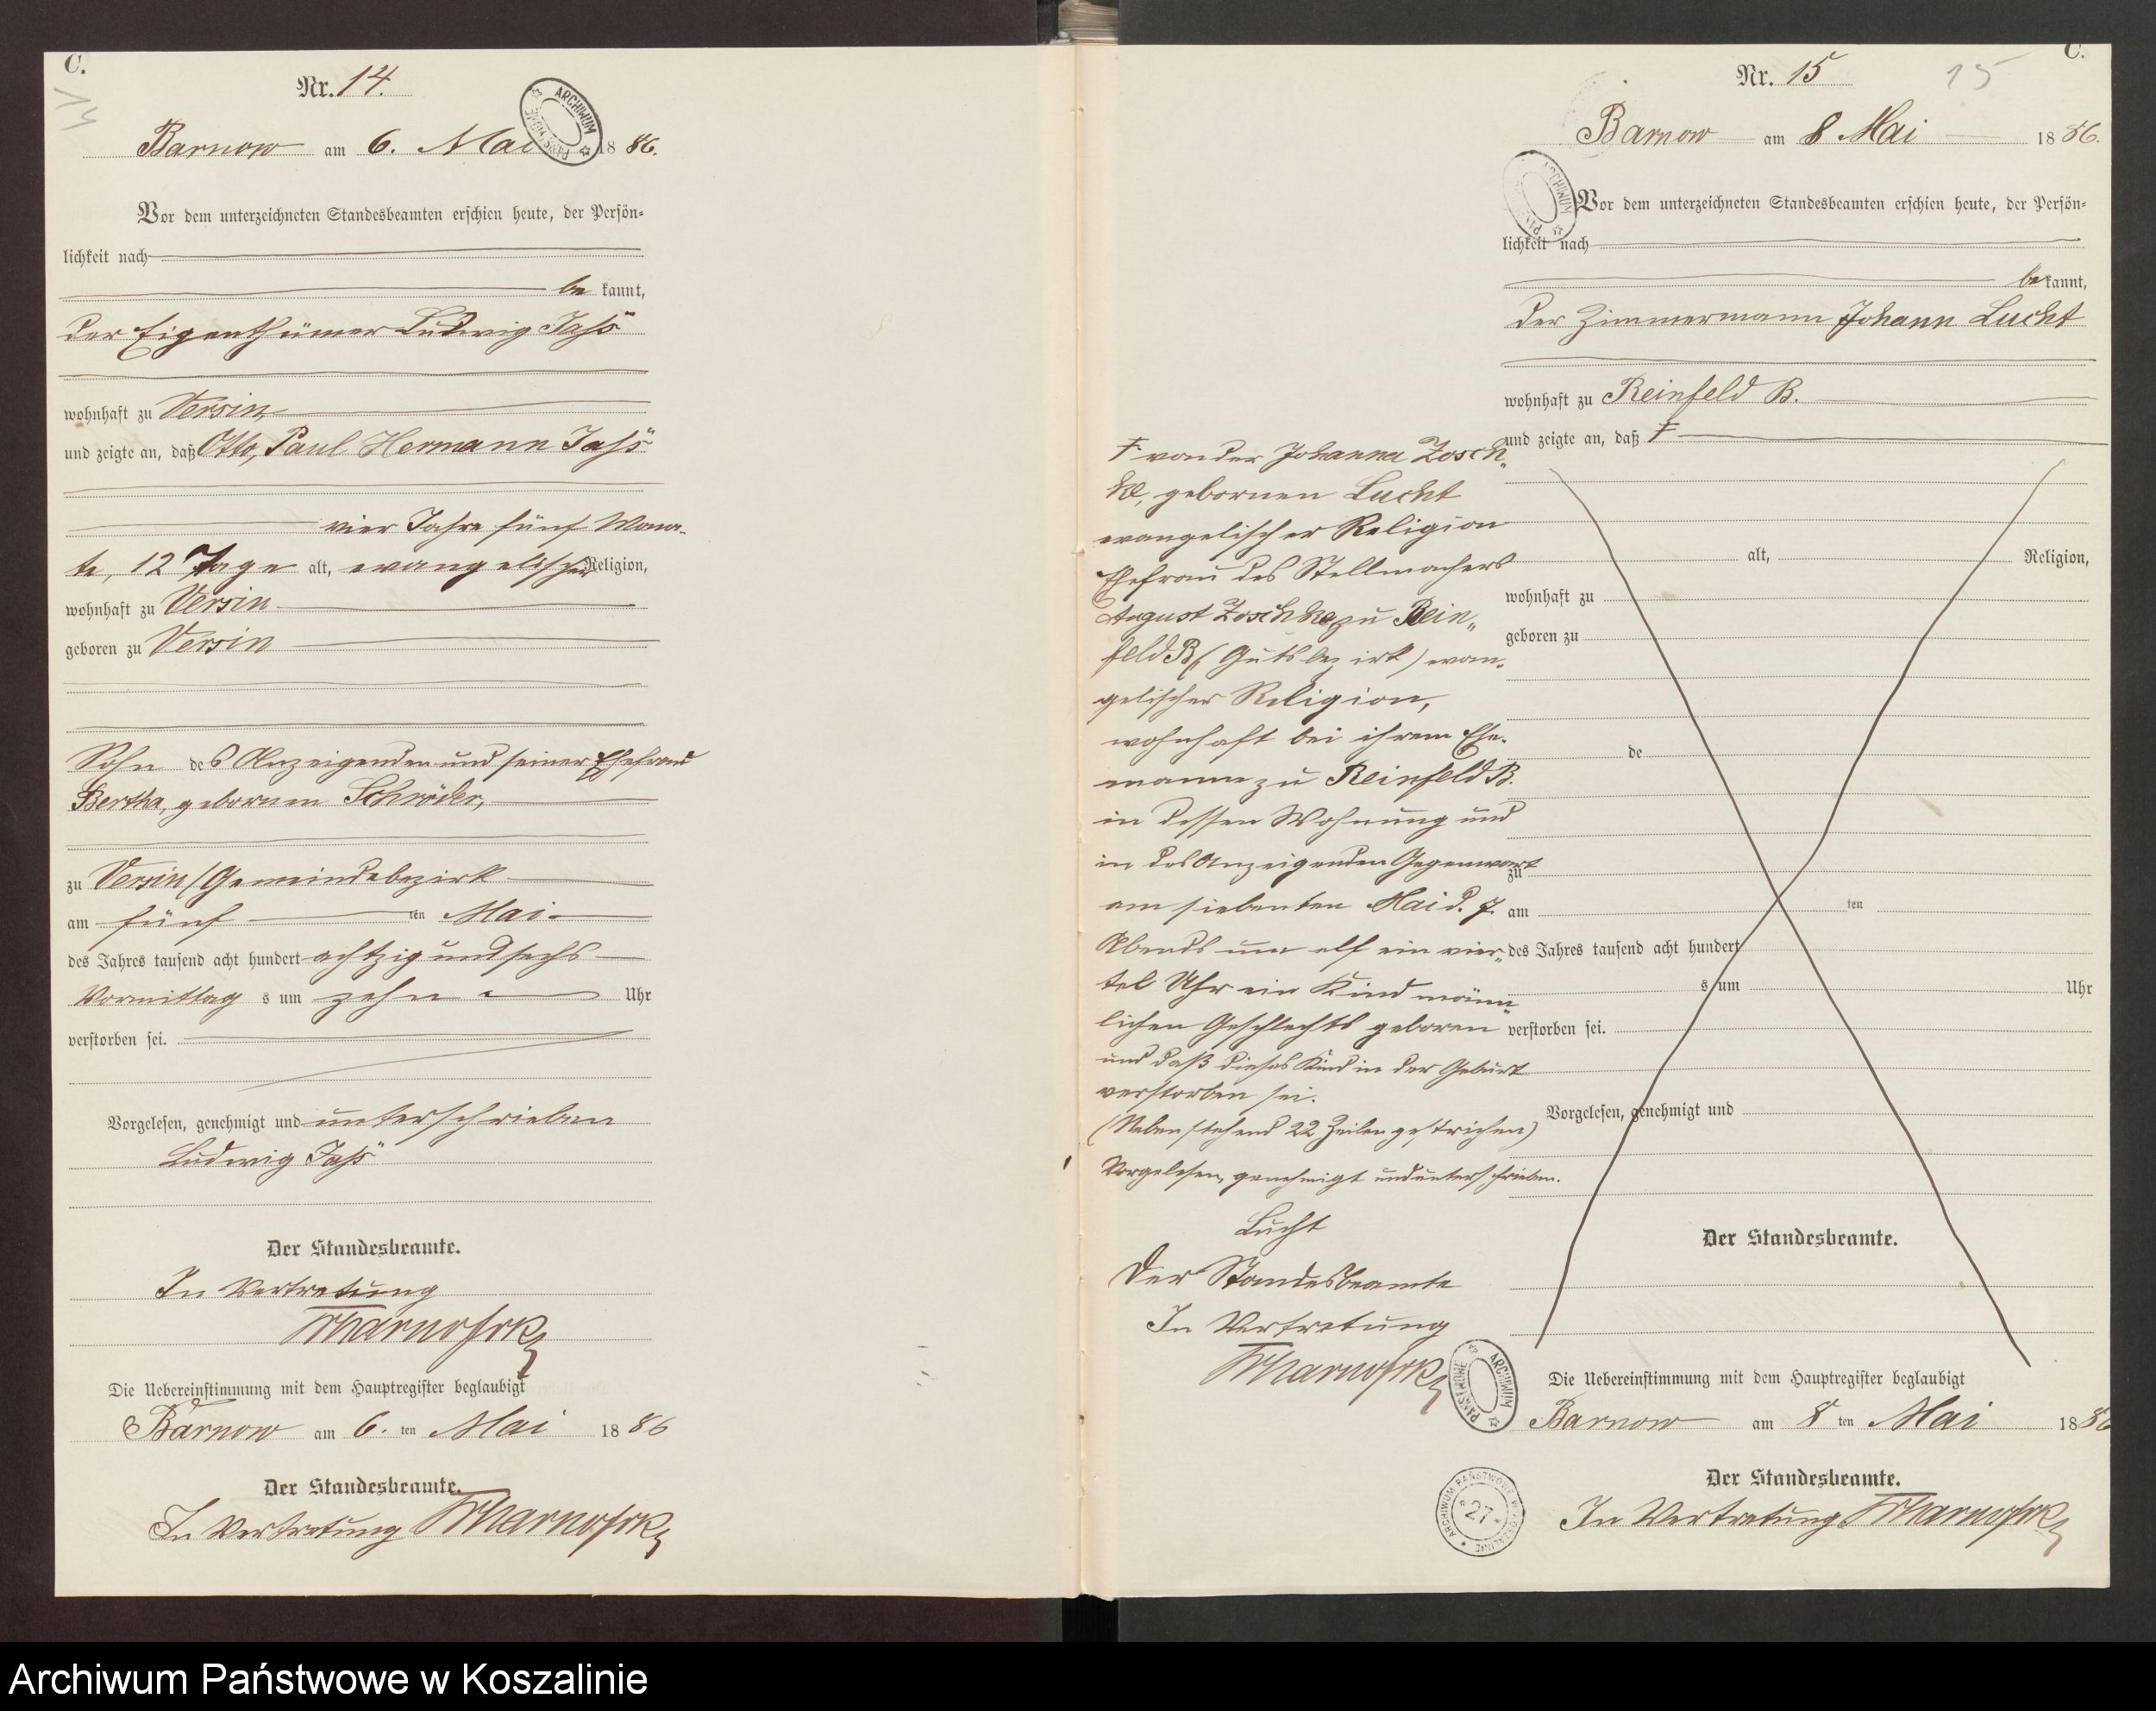 C.
14
Nr. 14.
ARCHIWUM PAŃSTWOWE
Barnow am 6. Mai 1886.
Vor dem unterzeichneten Standesbeamten erschien heute, der Persön-
lichkeit nach
be kannt,
der Eigenthümer Ludwig Jaß
wohnhaft zu Versin
und zeigte an, daß Otto, Paul Hermann Jaß
vier Jahre fünf Mona-
te, 12 Tage alt, evangelischer Religion,
wohnhaft zu Versin
geboren zu Versin
Sohn des Anzeigenden und seiner Ehefrau
Bertha, gebornen Schröder,
zu Versin (Gemeindebezirk
am fünf ten Mai
des Jahres tausend acht hundert achtzig und sechs
Vormittag s um zehn Uhr
verstorben sei.
Vorgelesen, genehmigt und unterschrieben
Ludwig Jaß
Der Standesbeamte.
In Vertretung
Die Uebereinstimmung mit dem Hauptregister beglaubigt
Barnow am 6. ten Mai 1886
Der Standesbeamte.
In Vertretung
C.
Nr. 15
15
Barnow am 8 Mai 1886.
ARCHIWUM
Vor dem unterzeichneten Standesbeamten erschien heute, der Persön-
lichkeit nach
be kannt,
der Zimmermann Johann Lucht
wohnhaft zu Reinfeld B.
und zeigte an, daß F
F von der Johanna Zosch„
ke, gebornen Lucht
evangelischer Religion
Ehefrau des Stellmachers
August Zoschke zu Rein„
feld B (Gutsbezirk) evan„
gelischer Religion,
wohnhaft bei ihrem Ehe-
manne zu Reinfeld B.
in dessen Wohnung und
in des Anzeigenden Gegenwart
am siebenten Mai d. J.
Abends um elf ein vier„
tel Uhr ein Kind männ„
lichen Geschlechts geboren
und daß dieses Kind in der Geburt
verstorben sei.
(Nebenstehend 22 Zeilen gestrichen)
Vorgelesen, genehmigt und unterschrieben.
Lucht
Der Standesbeamte
In Vertretung
alt, Religion,
wohnhaft zu
geboren zu
de
zu
am ten
des Jahres tausend acht hundert
s um Uhr
verstorben sei.
Vorgelesen, genehmigt und
Der Standesbeamte.
ARCHIWUM PAŃSTWOWE
Die Uebereinstimmung mit dem Hauptregister beglaubigt
Barnow am 8 ten Mai 1886
Der Standesbeamte.
In Vertretung
ARCHIWUM PAŃSTWOWE W KOSZALINIE
27
Archiwum Państwowe w Koszalinie